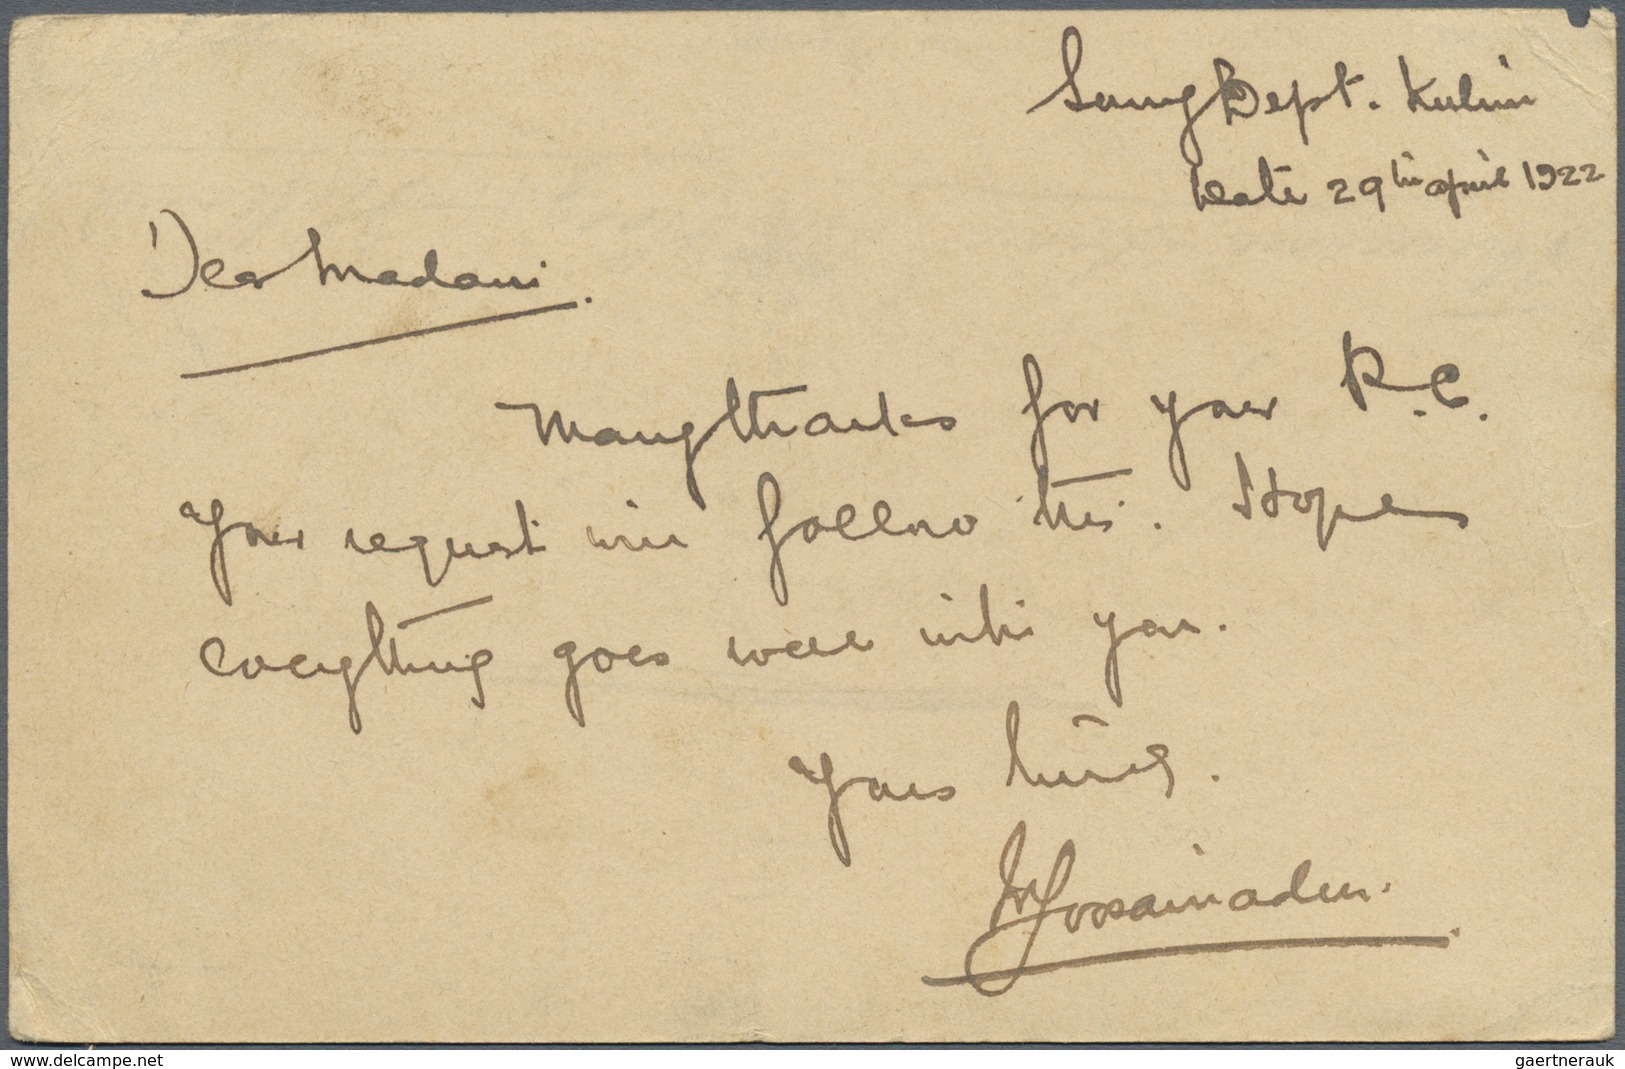 Survey Dept. Kulim
Date 29th April 1922
Dear Madam.
Many thanks for your P.C.
Your request will follow this. Hopes
everything goes well with you.
Yours truly.
www.delcampe.net
gaertnerauk